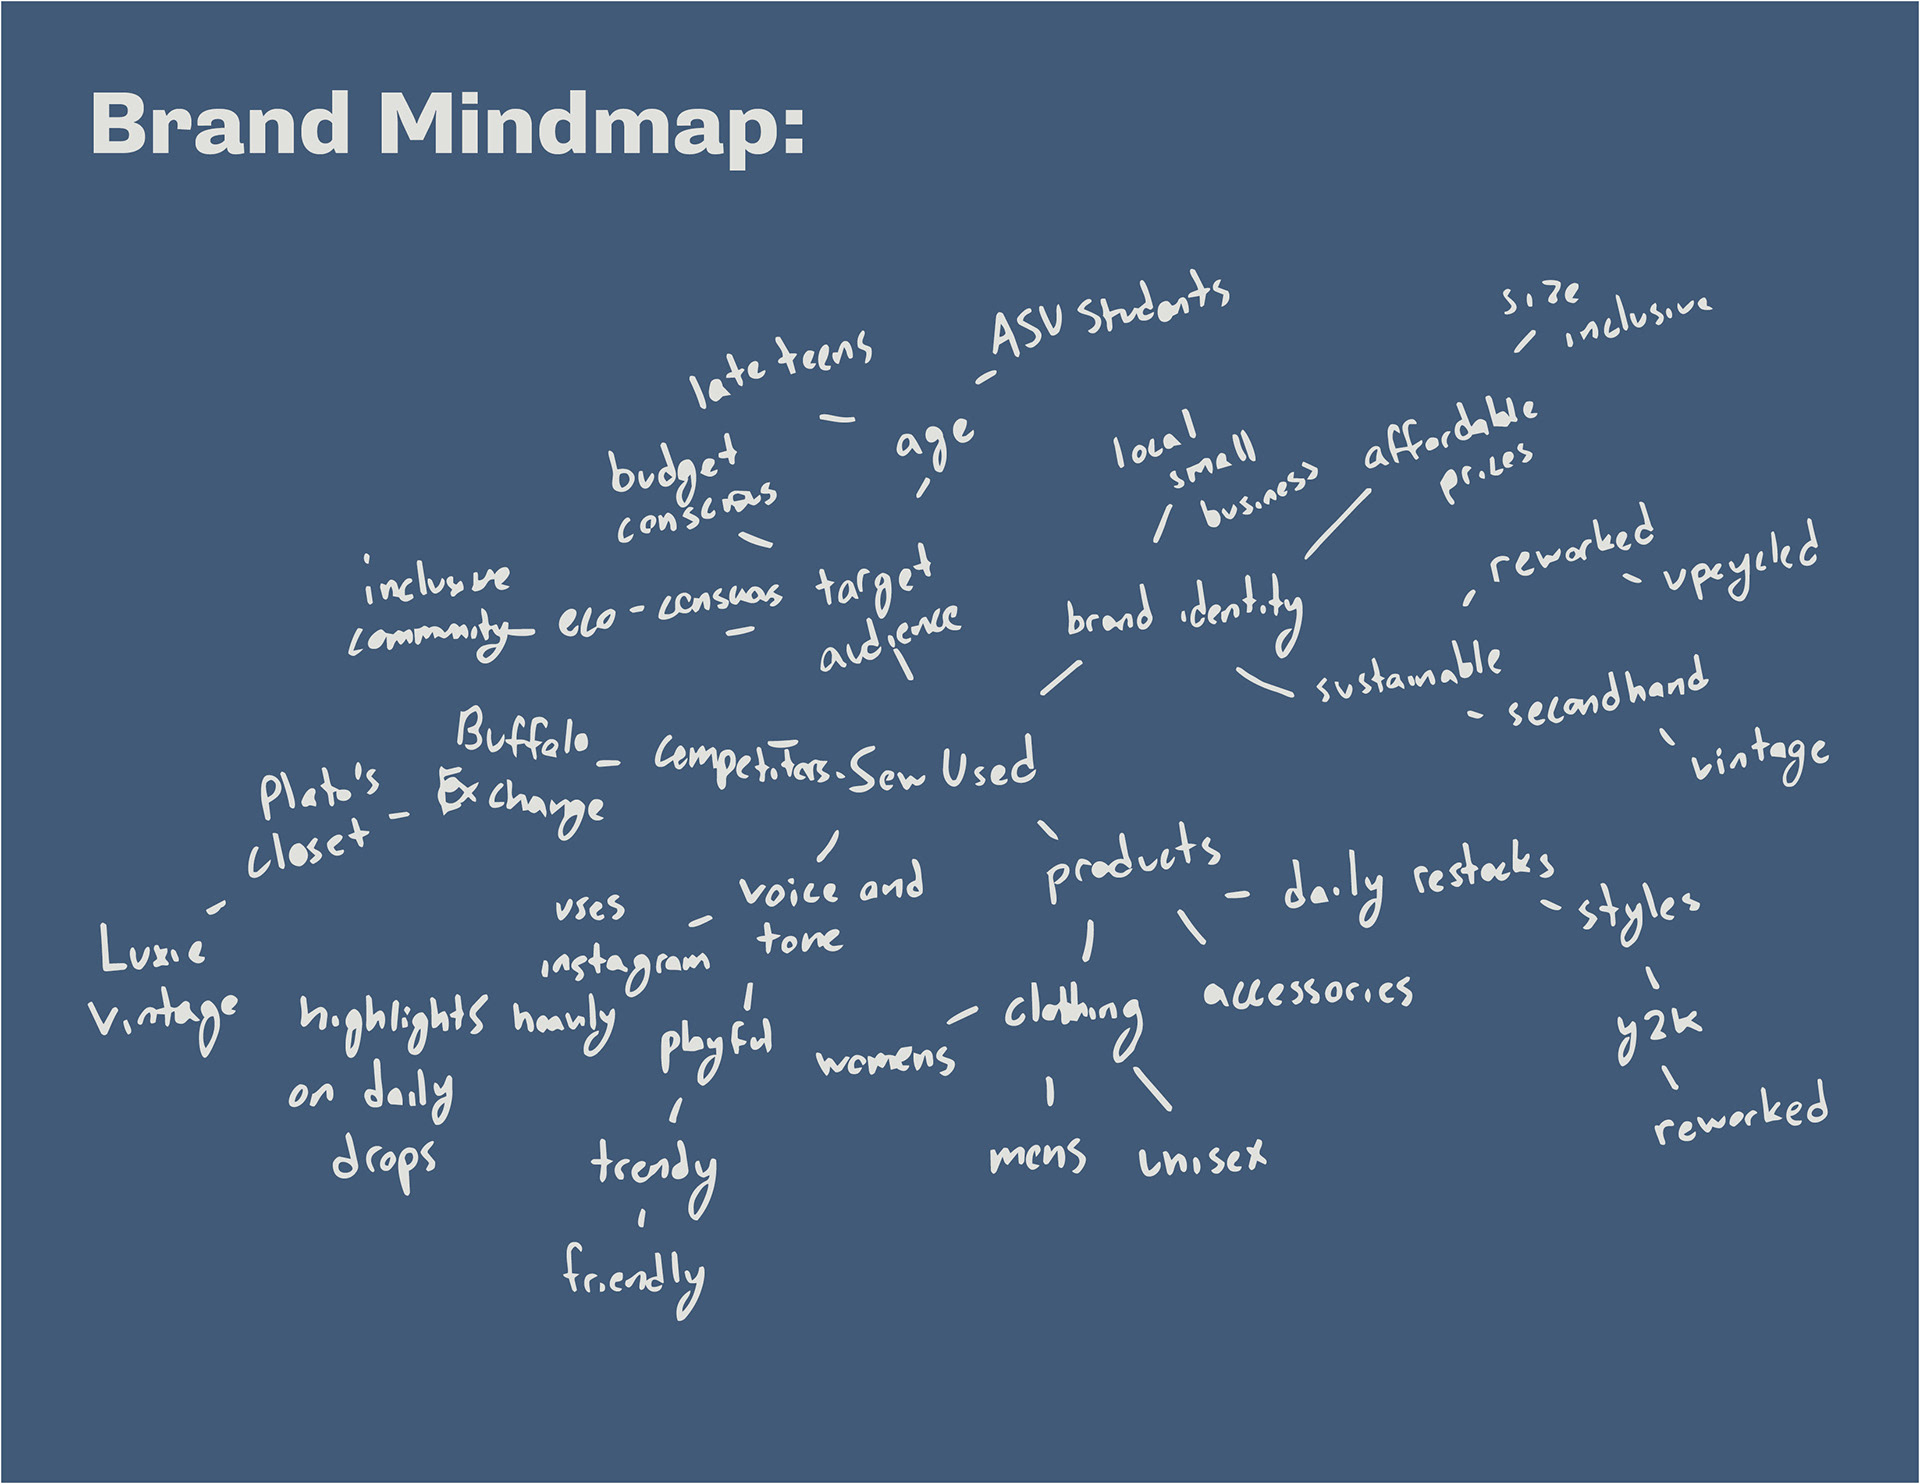 Brand Mindmap:
ASU Students
size
inclusive
late teens
age
affordable
prices
local
small
business
budget
conscious
reworked
upcycled
inclusive
community
eco-conscious
target
audience
brand identity
sustainable
secondhand
vintage
Buffalo
Exchange
competitors
Sew Used
Plato's
closet
products
daily restocks
styles
voice and
tone
uses
instagram
heavily
Luxie
vintage
highlights
on daily
drops
playful
clothing
accessories
womens
y2k
reworked
trendy
mens
unisex
friendly